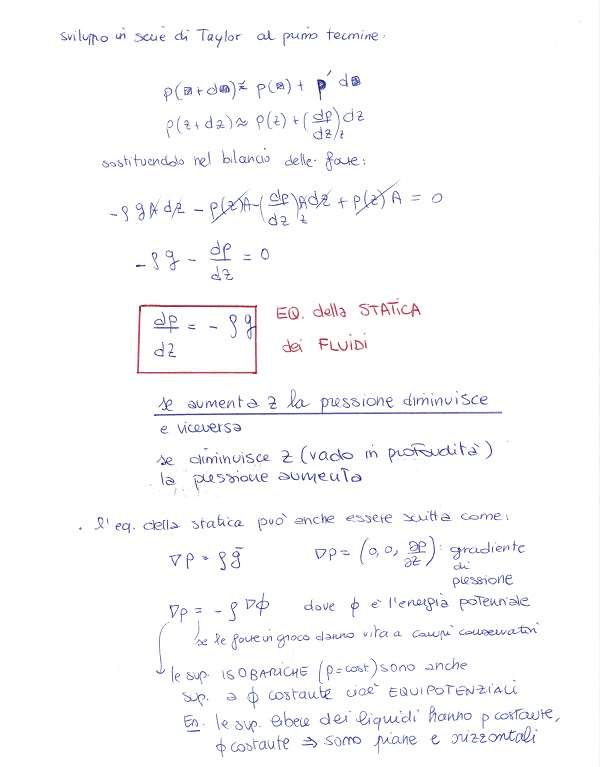 sviluppo in serie di Taylor al primo termine:
p(z+dz) ≈ p(z) + p' dz
p(z+dz) ≈ p(z) + (dp/dz)_z dz
sostituendolo nel bilancio delle forze:
-ρ g A dz - p(z)A - (dp/dz)_z A dz + p(z) A = 0
-ρg - dp/dz = 0
dp/dz = - ρg EQ. della STATICA
dei FLUIDI
se aumenta z la pressione diminuisce
e viceversa
se diminuisce z (vado in profondità)
la pressione aumenta
. l'eq. della statica può anche essere scritta come:
∇p = ρḡ ∇p = (0, 0, ∂p/∂z): gradiente
di
pressione
∇p = - ρ∇φ dove φ è l'energia potenziale
se le forze in gioco danno vita a campi conservativi
le sup. ISOBARICHE (p=cost.) sono anche
sup. a φ costante cioè EQUIPOTENZIALI
Es. le sup. libere dei liquidi hanno p costante,
φ costante ⇒ sono piane e orizzontali